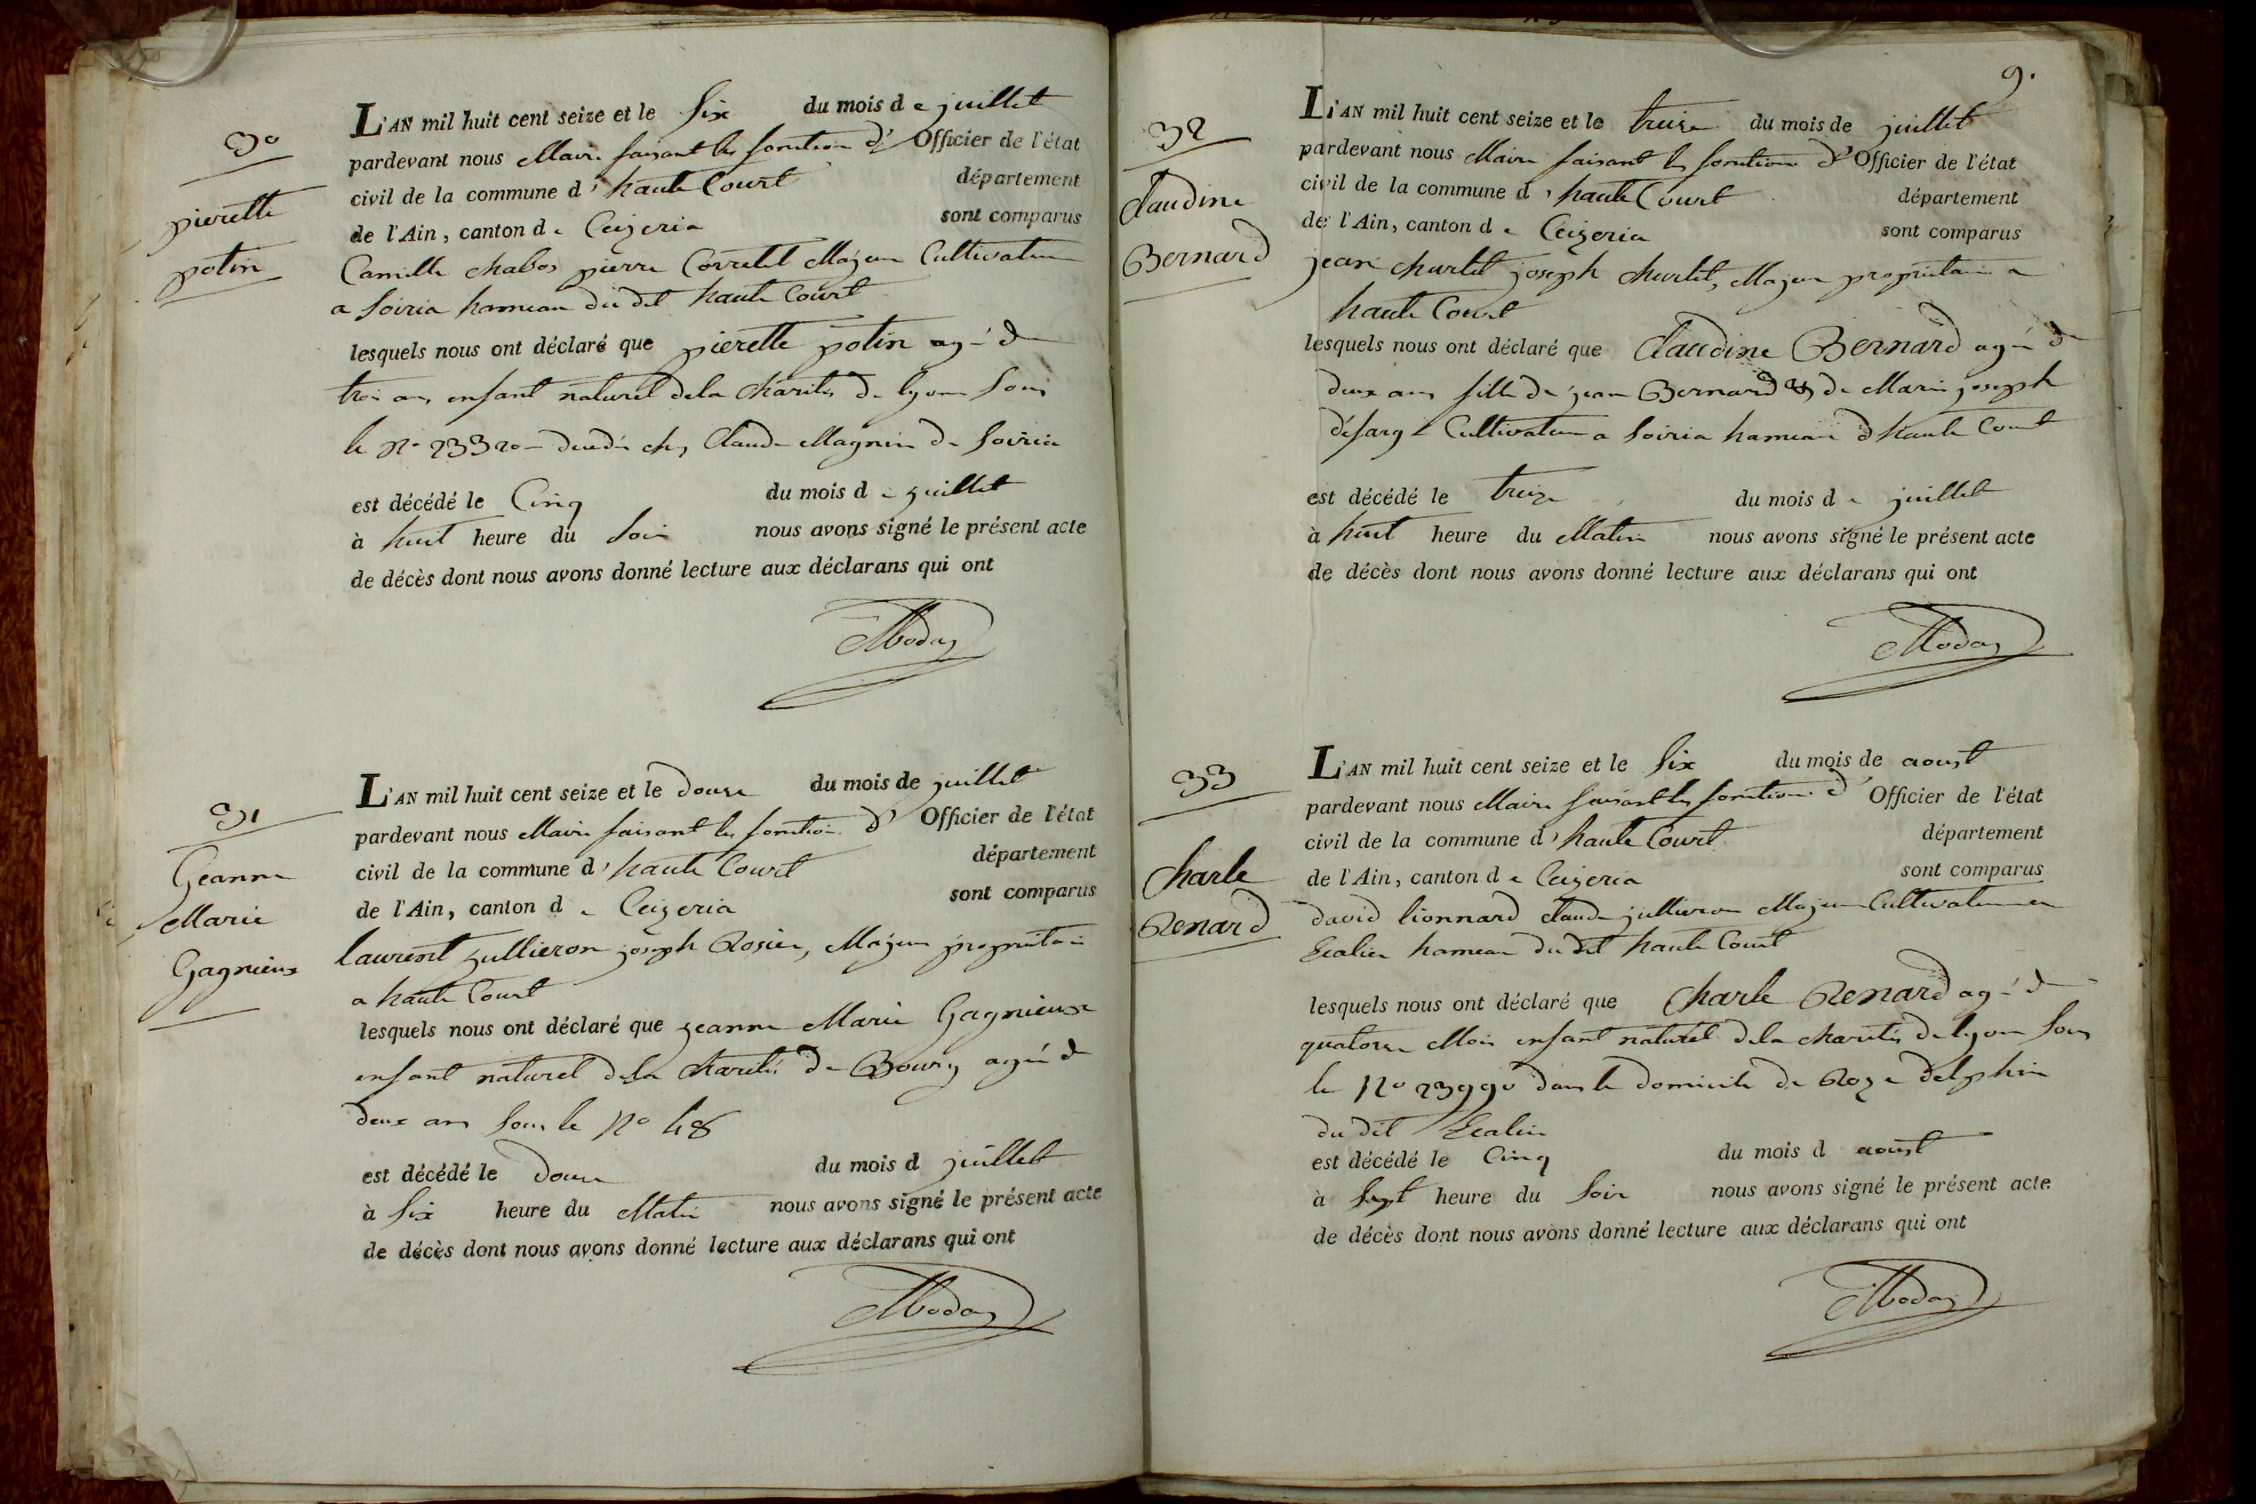 30
pierette
potin
L'AN mil huit cent seize et le Six du mois de juillet
pardevant nous Maire faisant les fonction d' Officier de l'état
civil de la commune d' haute Court département
de l'Ain, canton de Ceizeria sont comparus
Camille chabos pierre Corretet Majeur Cultivateur
a Soiria hameau du dit haute Court
lesquels nous ont déclaré que pierette potin agé de
trois ans enfant naturel de la charité de lyon Sous
le No 23320 chez Claude Magnin de Soiria
est décédé le Cinq du mois de juillet
à huit heure du Soir nous avons signé le présent acte
de décès dont nous avons donné lecture aux déclarans qui ont
31
Geanne
Marie
Gagnieux
L'AN mil huit cent seize et le douze du mois de juillet
pardevant nous Maire faisant les fonction d' Officier de l'état
civil de la commune d' haute Court département
de l'Ain, canton de Ceizeria sont comparus
laurent jullieron joseph Rosier, Majeur propriétaire
a haute Court
lesquels nous ont déclaré que geanne Marie Gagnieux
enfant naturel de la charité de Bourg agée de
deux ans Sous le No 48
est décédé le douze du mois d juillet
à Six heure du Matin nous avons signé le présent acte
de décès dont nous avons donné lecture aux déclarans qui ont
9.
32
Claudine
Bernard
L'AN mil huit cent seize et le treize du mois de juillet
pardevant nous Maire faisant les fonctions d' Officier de l'état
civil de la commune d' haute Court département
de l'Ain, canton de Ceizeria sont comparus
jean churlet joseph churlet, Majeur propriétaire a
haute Court
lesquels nous ont déclaré que Claudine Bernard agée de
deux ans fille de jean Bernard & de Marie joseph
Cultivateur a Soiria hameau d haute Court
est décédé le treize du mois de juillet
à huit heure du Matin nous avons signé le présent acte
de décès dont nous avons donné lecture aux déclarans qui ont
33
Charle
Renard
L'AN mil huit cent seize et le Six du mois de aoust
pardevant nous Maire faisant les fonction d' Officier de l'état
civil de la commune d' haute Court département
de l'Ain, canton de Ceizeria sont comparus
david lionnard claude jullieron Majeur Cultivateur en
hameau du dit haute Court
lesquels nous ont déclaré que Charle Renard agé de
quatorze Mois enfant naturel de la charité de lyon Sous
le No 23990 dans le domicile de Roze delphin
du dit
est décédé le Cinq du mois d aoust
à Sept heure du Soir nous avons signé le présent acte
de décès dont nous avons donné lecture aux déclarans qui ont